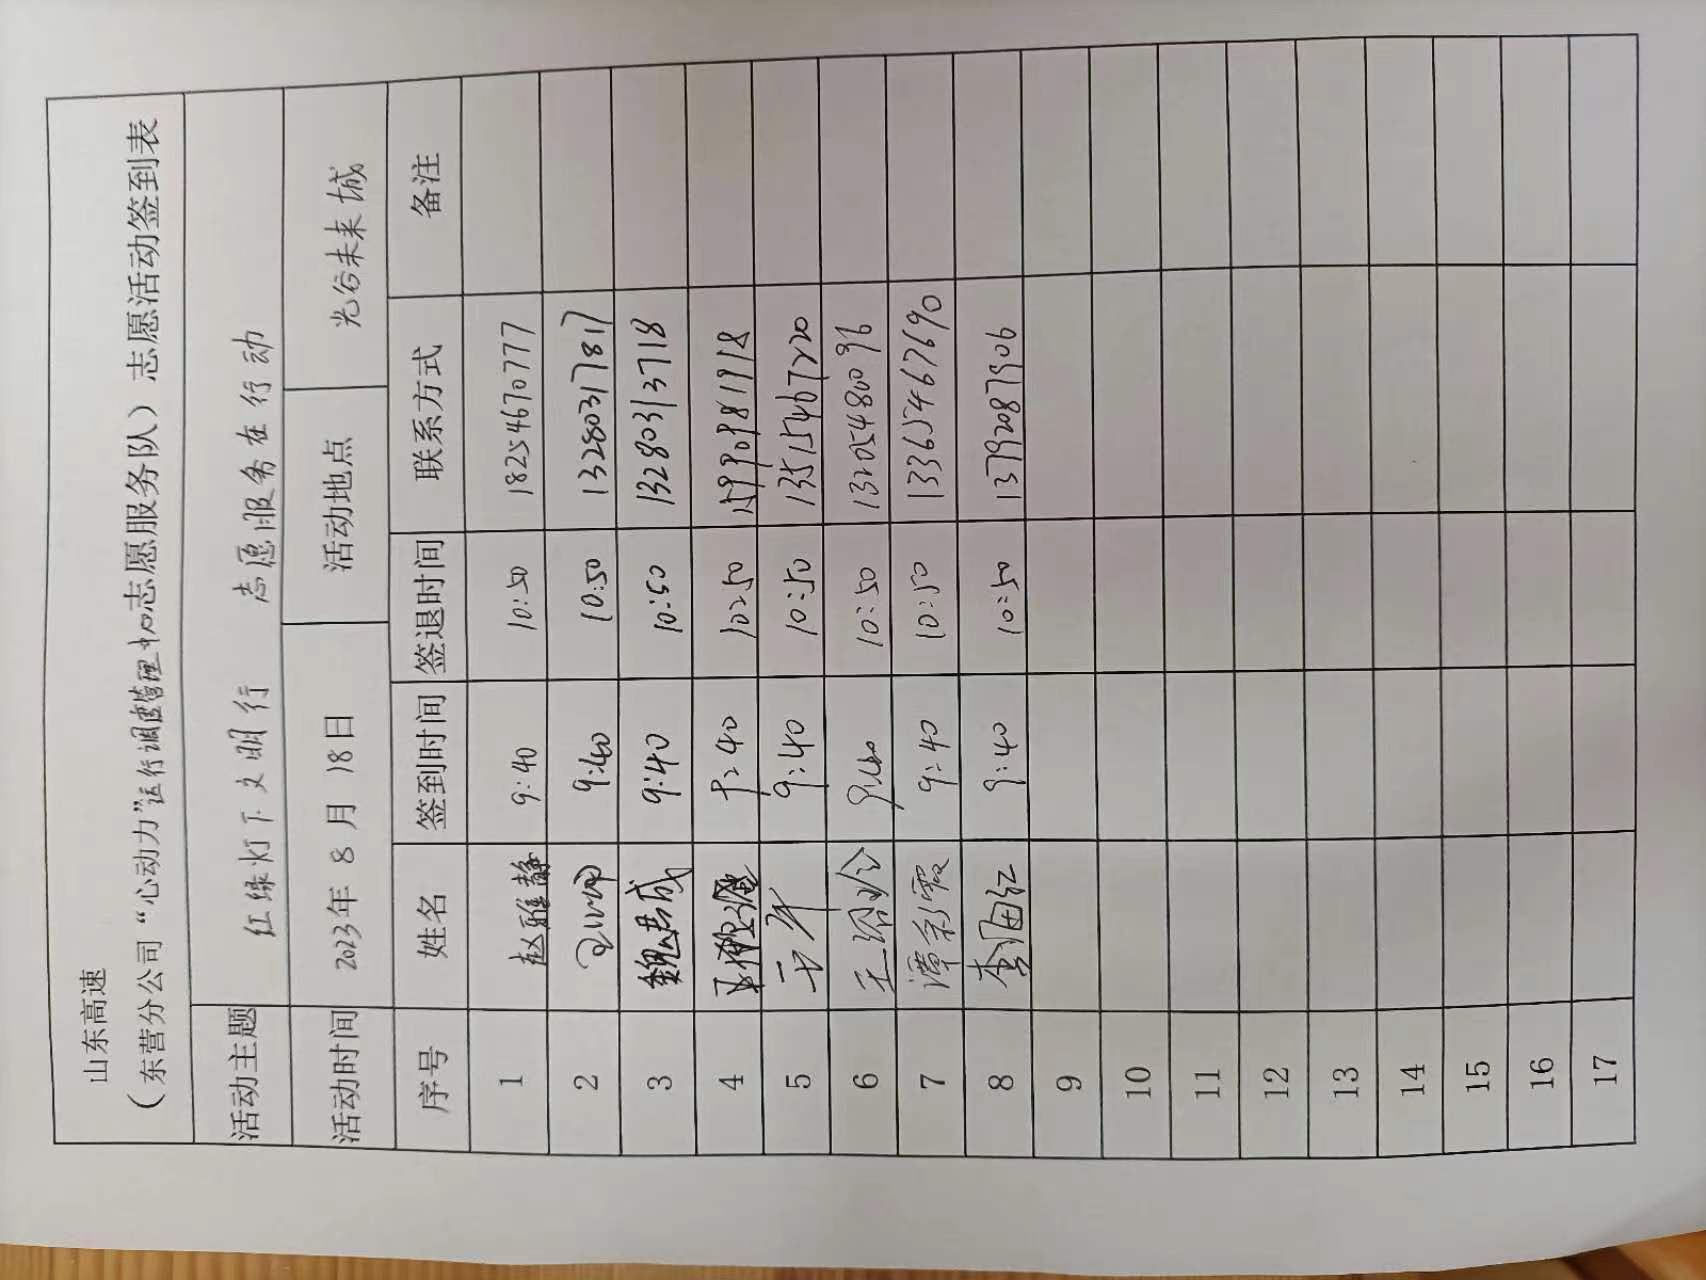 山东高速
（东营分公司“心动力”运行调度管理中心志愿服务队）志愿活动签到表
活动主题 红绿灯下文明行 志愿服务在行动
活动时间 2023年 8 月 18日 活动地点 光谷未来城
序号 姓名 签到时间 签退时间 联系方式 备注
1 赵雅静 9:40 10:50 18254670777
2 9:40 10:50 13280317817
3 魏君成 9:40 10:50 13280313718
4 9:40 10:50
5 9:40 10:50 13515467220
6 9:40 10:50 13205480096
7 谭彩霞 9:40 10:50 13365467690
8 李海红 9:40 10:50 13792087906
9
10
11
12
13
14
15
16
17